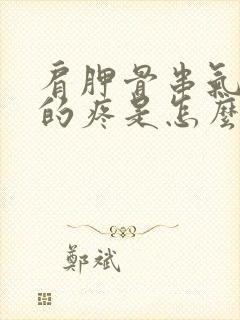 肩胛骨串氣
的疼是怎麼
鄭斌